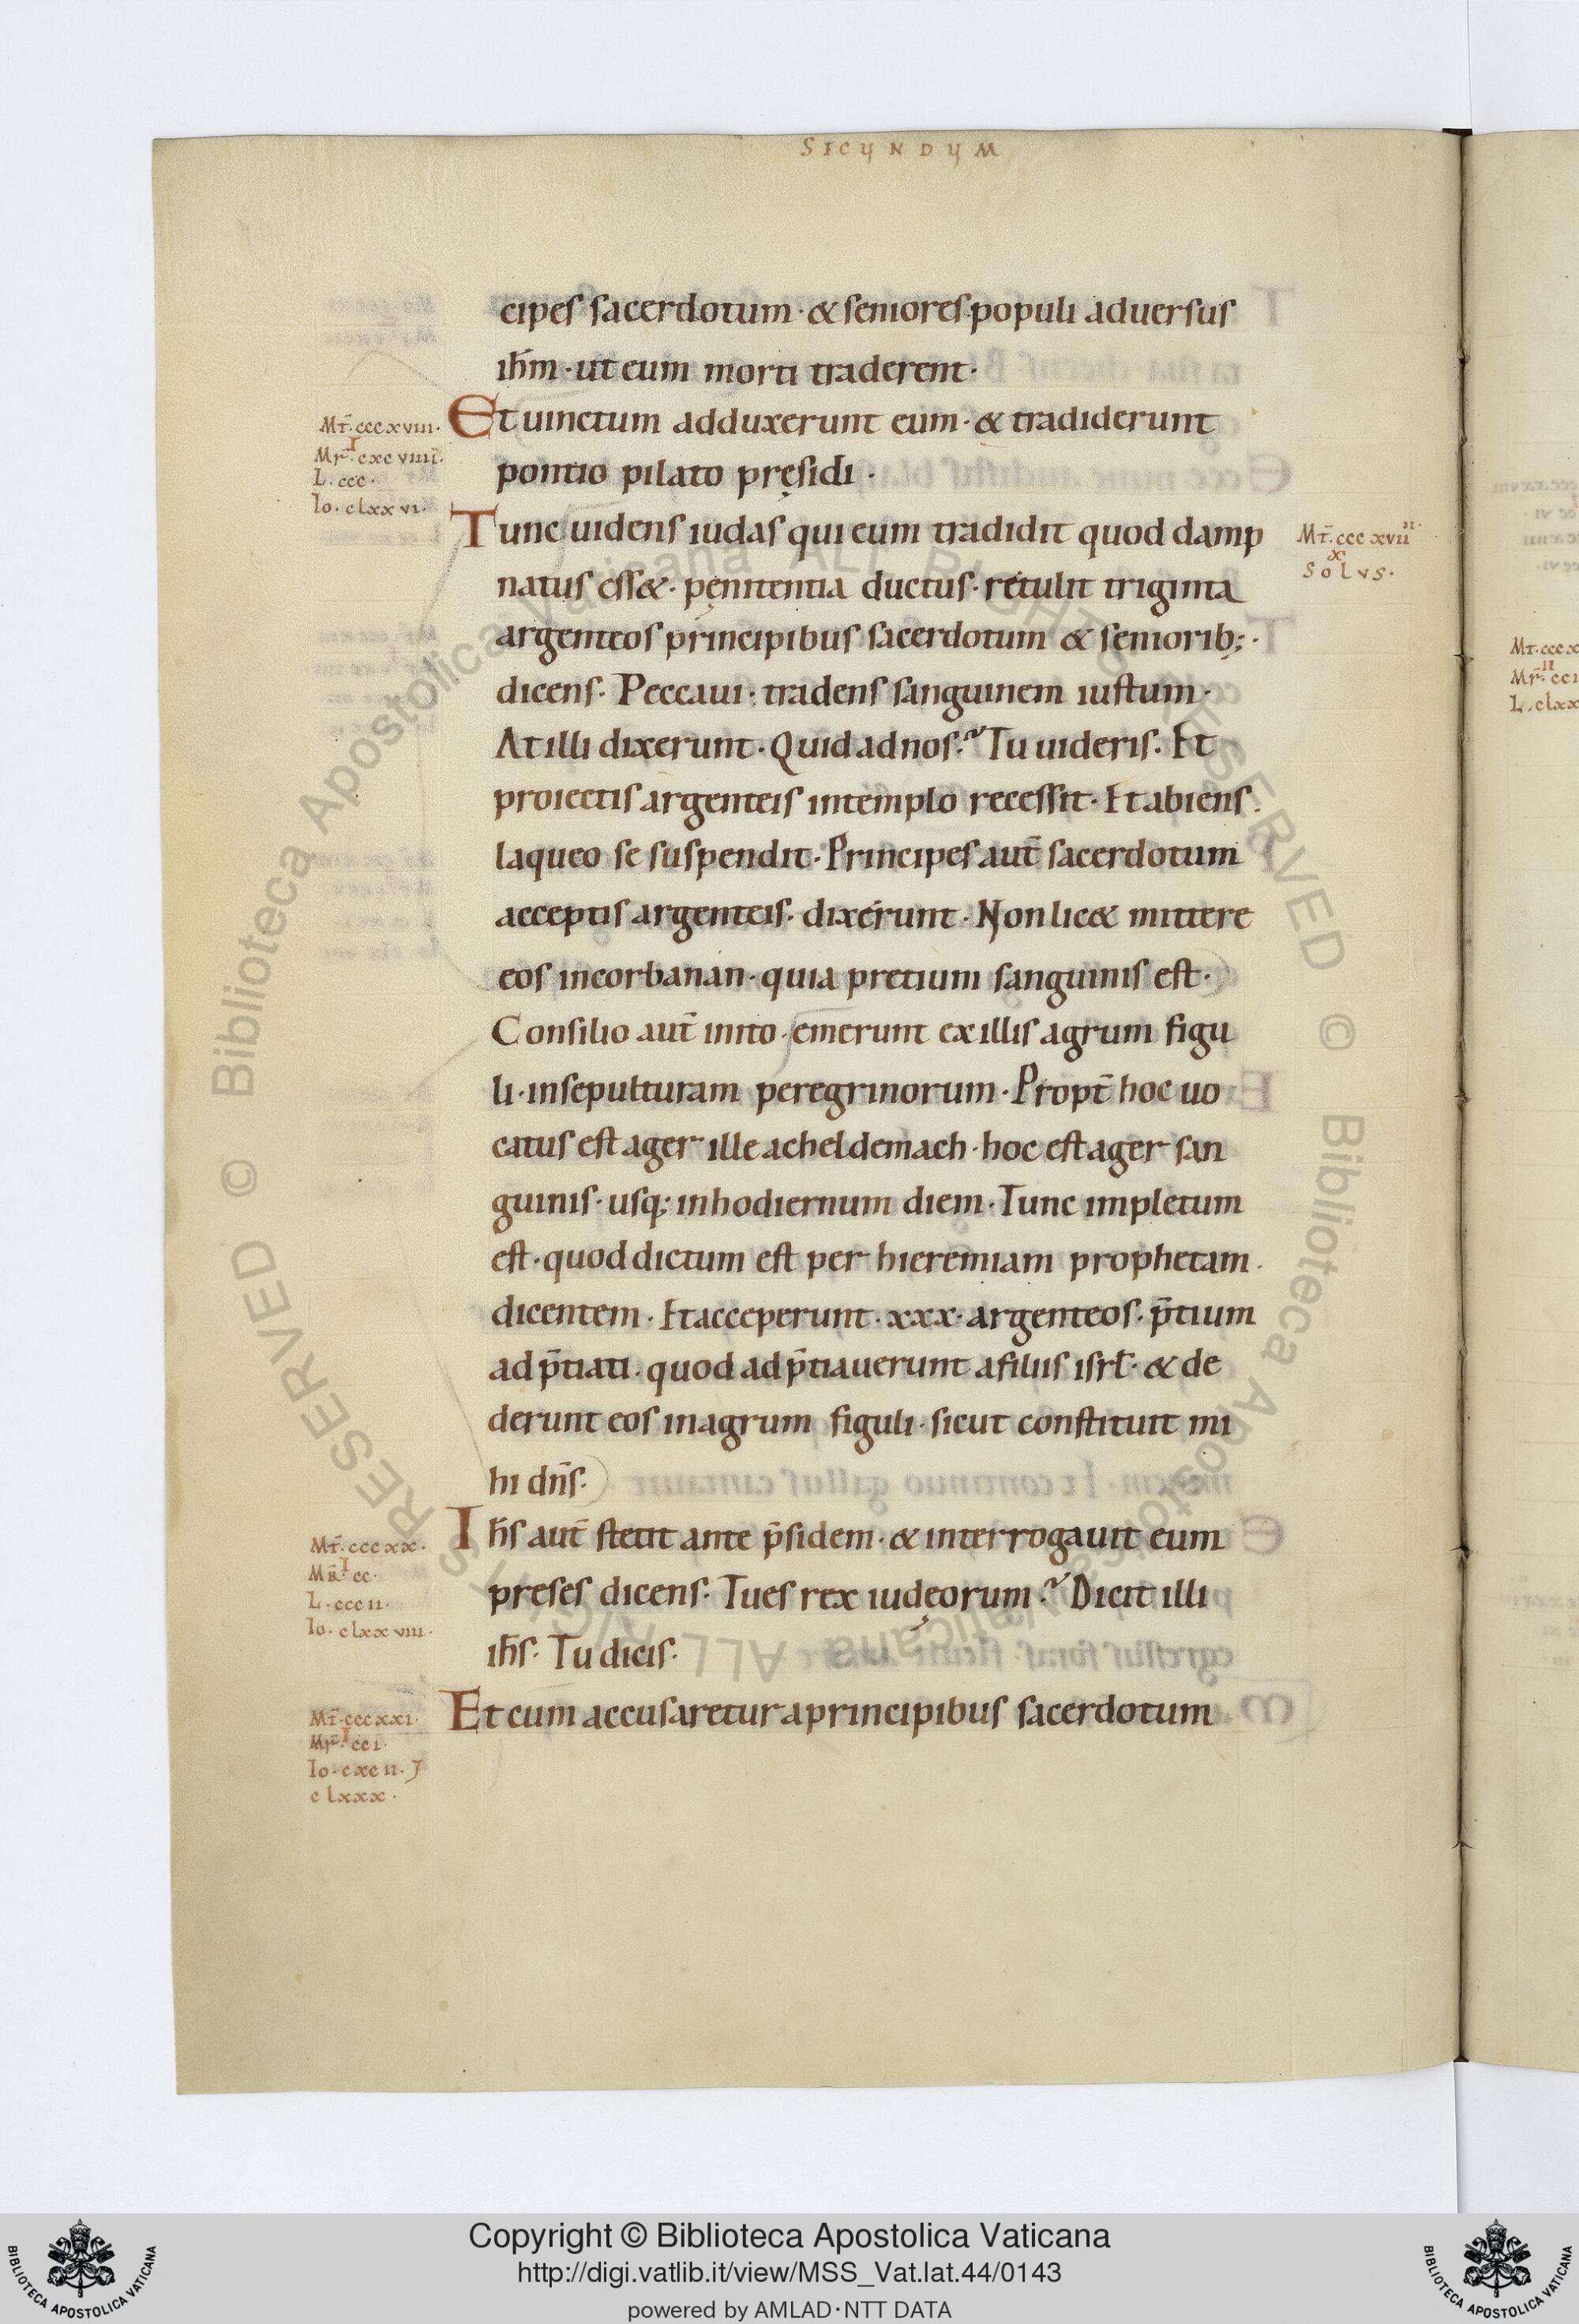 SECUNDUM
cipes sacerdotum · & seniores populi aduersus
ih̅m · ut eum morti traderent ·
Mt̅. cccxviii.
Mr̅. cxcviiii.
I
L. ccc.
Io. clxxvi.
Et uinctum adduxerunt eum · & tradiderunt
pontio pilato pręsidi ·
Tunc uidens iudas qui eum tradidit quod damp
Mt̅. cccxvii
x
Solus.
natus ess& · pęnitentia ductus · retulit triginta
argenteos principibus sacerdotum &seniorib; ·
dicens · Peccaui · tradens sanguinem iustum ·
At illi dixerunt · Quid ad nos? Tu uideris · Et
proiectis argenteis in templo recessit · Et abiens
laqueo se suspendit · Principes aut̅ sacerdotum
acceptis argenteis · dixerunt · Non lic& mittere
eos in corbanan · quia pretium sanguinis est ·
Consilio aut̅ inito · emerunt ex illis agrum figu
li · in sepulturam peregrinorum · Propt̅ hoc uo
catus est ager ille acheldemach · hoc est ager san
guinis · usq; in hodiernum diem · Tunc impletum
est · quod dictum est per hieremiam prophetam ·
dicentem · Et acceperunt · xxx · argenteos · p̅tium
adp̅tiati · quod adp̅tiauerunt a filiis isrl̅ · & de
derunt eos in agrum figuli · sicut constituit mi
hi dn̅s ·
Mt̅. cccxx.
Mr̅. cc.
I
L. cccii.
Io. clxxviii.
Ih̅s aut̅ stetit ante p̅sidem · & interrogauit eum
preses dicens · Tu es rex iudęorum? Dicit illi
ih̅s · Tu dicis ·
Mt̅. cccxxi.
Mr̅. cci.
I
Io. cxcii. 7
clxxx.
Et cum accusaretur a principibus sacerdotum
Copyright © Biblioteca Apostolica Vaticana
http://digi.vatlib.it/view/MSS_Vat.lat.44/0143
powered by AMLAD·NTT DATA
BIBLIOTECA APOSTOLICA VATICANA
BIBLIOTECA APOSTOLICA VATICANA
© Biblioteca Apostolica Vaticana ALL RIGHTS RESERVED © Biblioteca Apostolica Vaticana ALL RIGHTS RESERVED